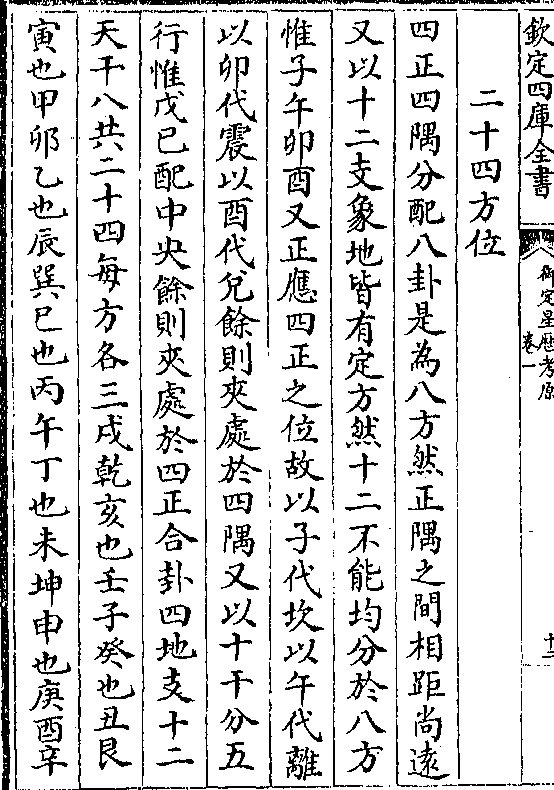 欽定四庫全書
御定星歴考原
卷一
十三
二十四方位
四正四隅分配八卦是為八方然正隅之間相距尚遠
又以十二支象地皆有定方然十二不能均分於八方
惟子午卯酉又正應四正之位故以子代坎以午代離
以卯代震以酉代兌餘則夾處於四隅又以十干分五
行惟戊己配中央餘則夾處於四正合卦四地支十二
天干八共二十四每方各三戌乾亥也壬子癸也丑艮
寅也甲卯乙也辰巽巳也丙午丁也未坤申也庚酉辛